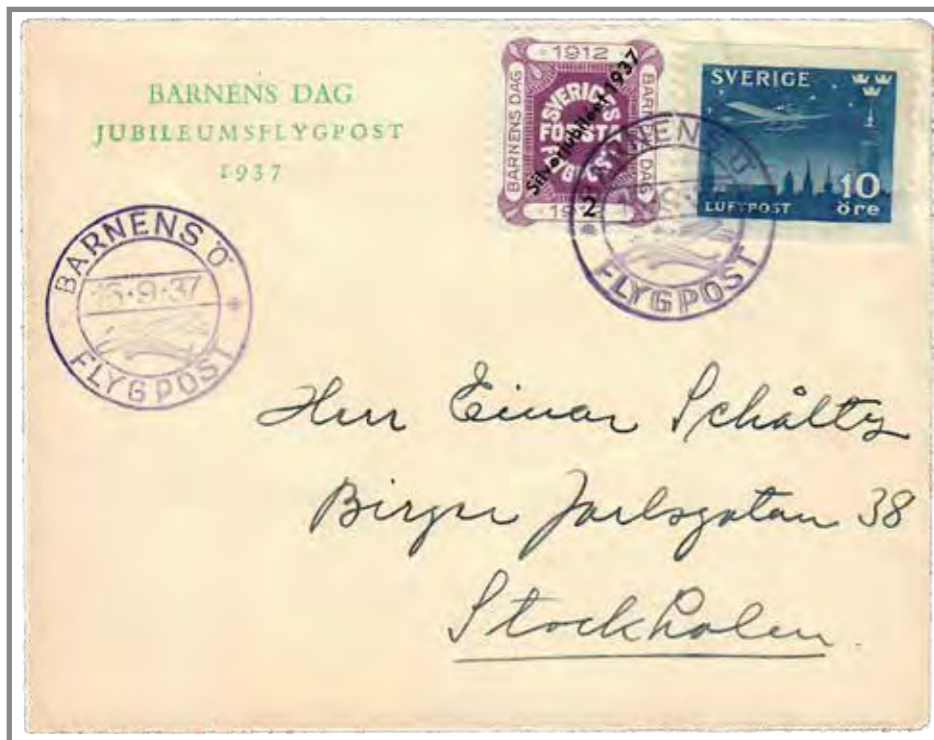 BARNENS DAG
JUBILEUMSFLYGPOST
1937
1912
BARNENS DAG
BARNENS DAG
SVERIGES
FÖRSTA
Silverjubileet 1937
2
SVERIGE
10
LUFTPOST öre
BARNENS Ö
FLYGPOST
BARNENS Ö
-9-37
FLYGPOST
Herr Einar Schåltz
Birger Jarlsgatan 38
Stockholm